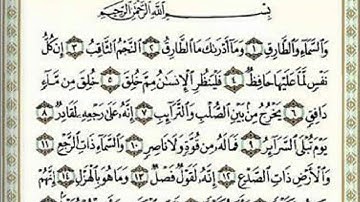 بِسْمِ اللَّهِ الرَّحْمَٰنِ الرَّحِيمِ
وَالسَّمَاءِ وَالطَّارِقِ ١ وَمَا أَدْرَاكَ مَا الطَّارِقُ ٢ النَّجْمُ الثَّاقِبُ ٣ إِن كُلُّ
نَفْسٍ لَّمَّا عَلَيْهَا حَافِظٌ ٤ فَلْيَنظُرِ الْإِنسَٰنُ مِمَّ خُلِقَ ٥ خُلِقَ مِن مَّاءٍ
دَافِقٍ ٦ يَخْرُجُ مِن بَيْنِ الصُّلْبِ وَالتَّرَائِبِ ٧ إِنَّهُ عَلَىٰ رَجْعِهِ لَقَادِرٌ ٨
يَوْمَ تُبْلَى السَّرَائِرُ ٩ فَمَا لَهُ مِن قُوَّةٍ وَلَا نَاصِرٍ ١٠ وَالسَّمَاءِ ذَاتِ الرَّجْعِ ١١
وَالْأَرْضِ ذَاتِ الصَّدْعِ ١٢ إِنَّهُ لَقَوْلٌ فَصْلٌ ١٣ وَمَا هُوَ بِالْهَزْلِ ١٤ إِنَّهُمْ